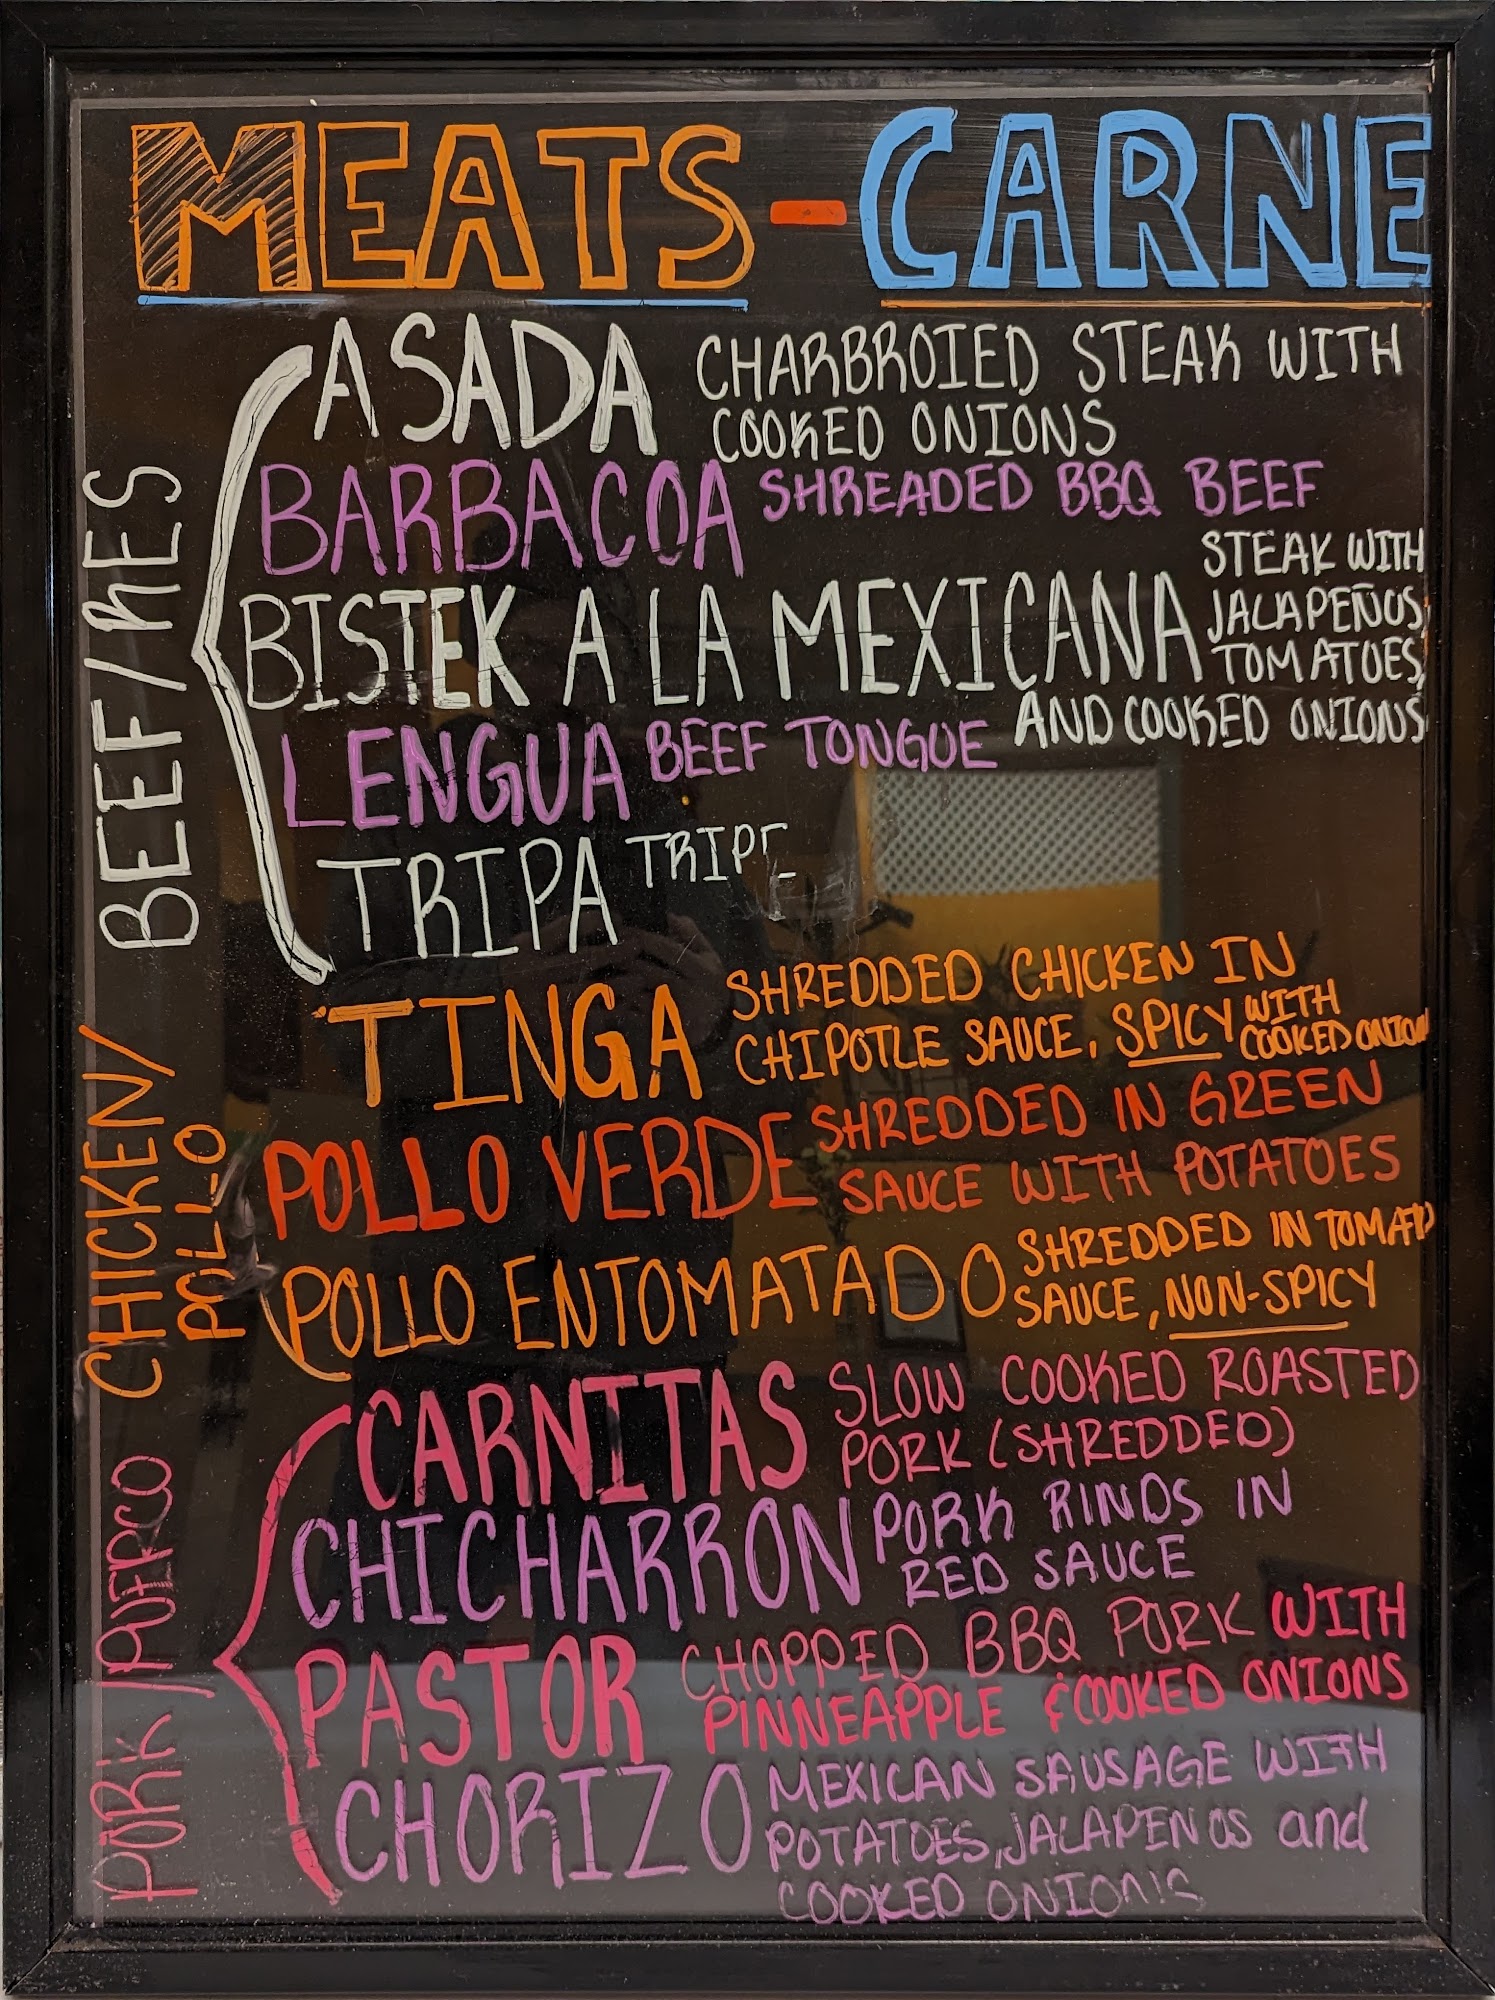 MEATS-CARNE
BEEF/RES
ASADA CHARBROIED STEAK WITH
COOKED ONIONS
BARBACOA SHREADED BBQ BEEF
BISTEK A LA MEXICANA STEAK WITH
JALAPEÑOS,
TOMATOES,
AND COOKED ONIONS
LENGUA BEEF TONGUE
TRIPA TRIPE
CHICKEN/
POLLO
TINGA SHREDDED CHICKEN IN
CHIPOTLE SAUCE, SPICY WITH
COOKED ONION
POLLO VERDE SHREDDED IN GREEN
SAUCE WITH POTATOES
POLLO ENTOMATADO SHREDDED IN TOMATO
SAUCE, NON-SPICY
PORK/PUERCO
CARNITAS SLOW COOKED ROASTED
PORK (SHREDDED)
CHICHARRON PORK RINDS IN
RED SAUCE
PASTOR CHOPPED BBQ PORK WITH
PINNEAPPLE & COOKED ONIONS
CHORIZO MEXICAN SAUSAGE WITH
POTATOES, JALAPENOS and
COOKED ONIONS